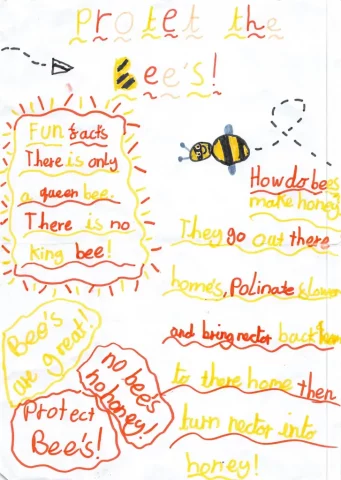 Protet the
Bee's!
Fun facts
There is only
a queen bee.
There is no
king bee!
How do bees
make honey
They go out there
home's, Polinate flower
and bring nector back
to there home then
turn nector into
honey!
Bee's
are great!
no bee's
no honey!
Protect
Bee's!